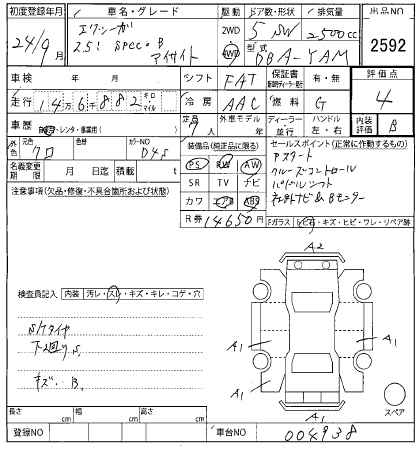 初度登録年月 車名・グレード 駆動 ドア数・形状 排気量 出品NO
24/9月 エクシーガ 2WD 5 SW 2500cc
2.5i SPEC・B アイサイト 4WD 型式 DBA-YAM 2592
車検 年 月 シフト FAT 保証書 有・無 評価点
走行 14万6千882キロ マイル 冷房 AAC 燃料 G 4
車歴 自家・レンタ・事業用( ) 定員 7人 外車モデル 年 ディーラー 並行 ハンドル 左・右 内装評価 B
外色 元色 クロ 色替 カラーNO D4S
装備品(純正品に限る) セールスポイント(正常に作動するもの)
名義変更期限 月 日迄 積載 t
PS PW AW Pスタート
SR TV ナビ クルーズコントロール
注意事項(欠品・修復・不具合箇所および状態)
カワ エアB ABS パドルシフト
R券 14650円
Fガラス 飛石・キズ・ヒビ・ワレ・リペア跡
検査員記入 内装 汚レ・スレ・キズ・キレ・コゲ・穴
S/Tタイヤ
下廻りS
キズ・B
A2
A1
A1
A1
A1
スペア
長さ cm 幅 cm 高さ cm
登録NO 車台NO 004938